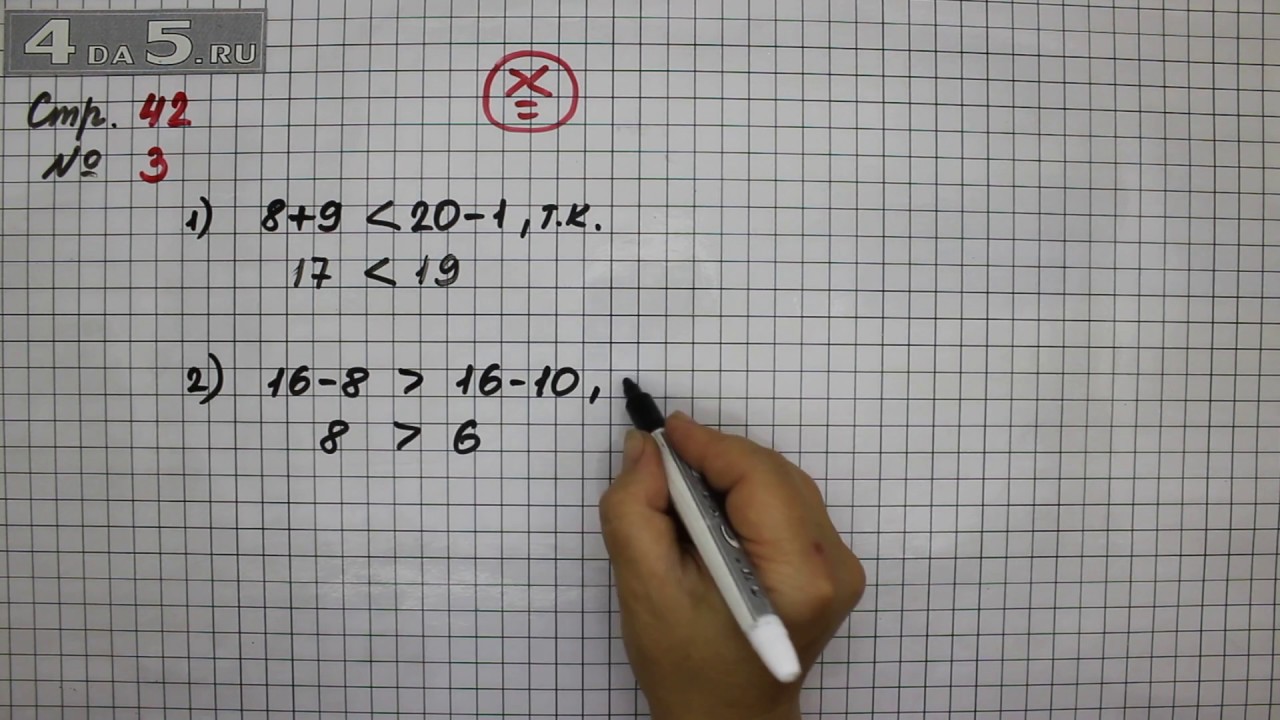 4DA5.RU
Стр. 42
№ 3
X
=
1) 8+9 < 20-1, т.к.
17 < 19
2) 16-8 > 16-10,
8 > 6